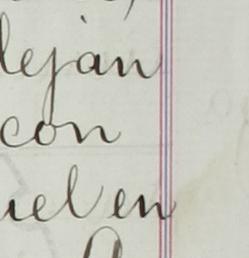 leján
con
uel en